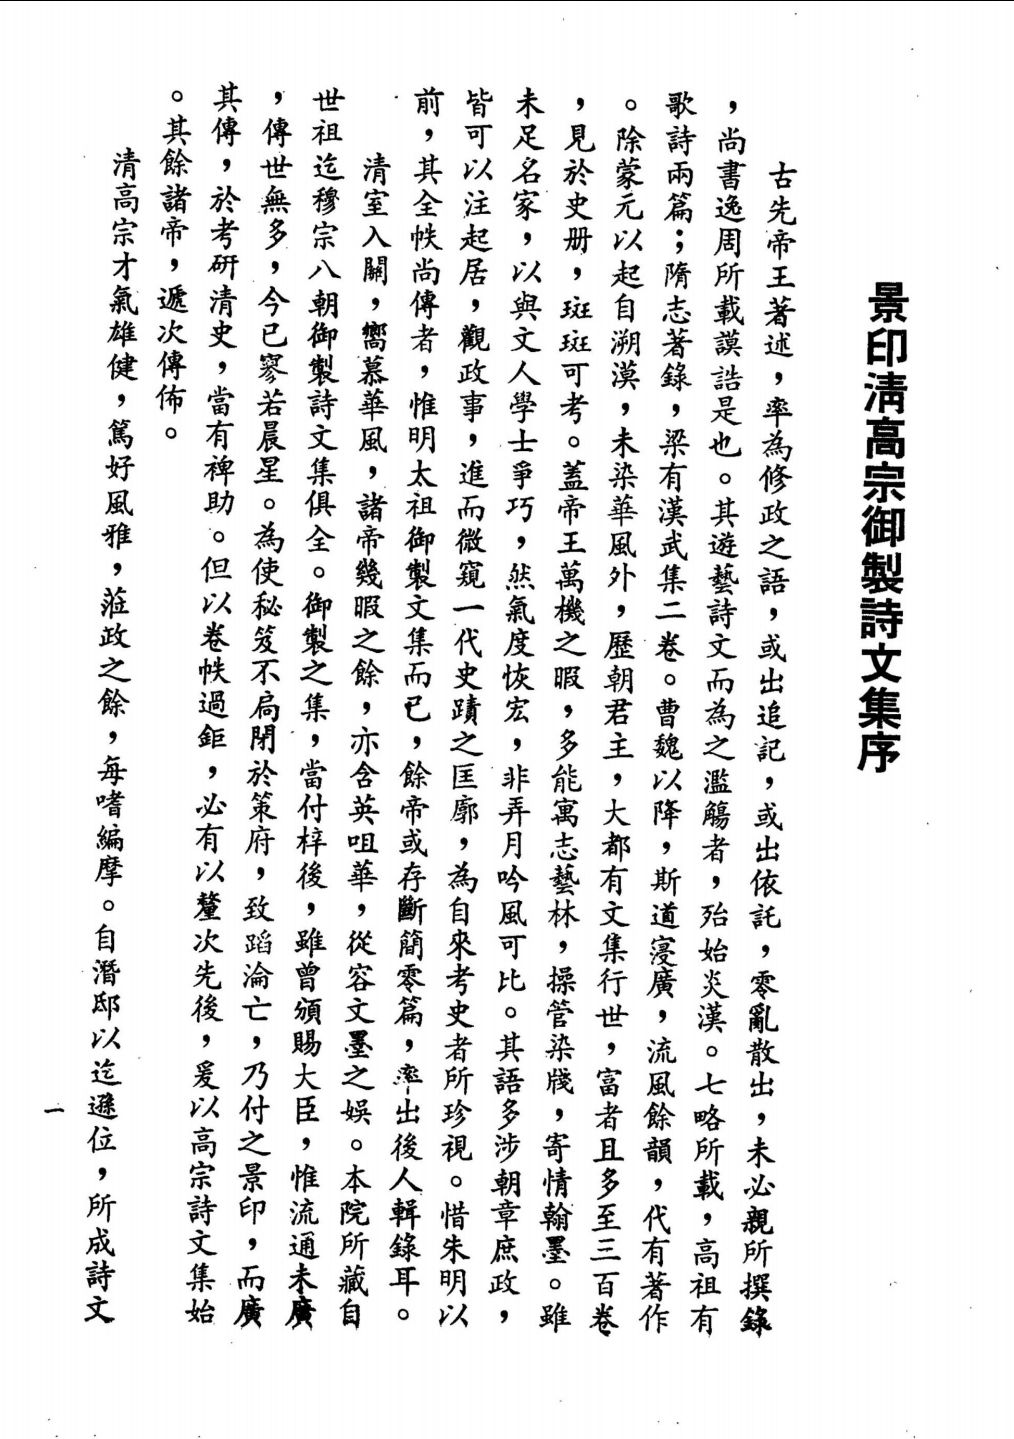 景印清高宗御製詩文集序
古先帝王著述，率為修政之語，或出追記，或出依託，零亂散出，未必親所撰錄
，尚書逸周所載謨誥是也。其遊藝詩文而為之濫觴者，殆始炎漢。七略所載，高祖有
歌詩兩篇；隋志著錄，梁有漢武集二卷。曹魏以降，斯道寖廣，流風餘韻，代有著作
。除蒙元以起自溯漠，未染華風外，歷朝君主，大都有文集行世，富者且多至三百卷
，見於史册，斑斑可考。蓋帝王萬機之暇，多能寓志藝林，操管染牋，寄情翰墨。雖
未足名家，以與文人學士爭巧，然氣度恢宏，非弄月吟風可比。其語多涉朝章庶政，
皆可以注起居，觀政事，進而微窺一代史蹟之匡廓，為自來考史者所珍視。惜朱明以
前，其全帙尚傳者，惟明太祖御製文集而已，餘帝或存斷簡零篇，率出後人輯錄耳。
清室入關，嚮慕華風，諸帝幾暇之餘，亦含英咀華，從容文墨之娛。本院所藏自
世祖迄穆宗八朝御製詩文集俱全。御製之集，當付梓後，雖曾頒賜大臣，惟流通未廣
，傳世無多，今已寥若晨星。為使秘笈不扃閉於策府，致蹈淪亡，乃付之景印，而廣
其傳，於考研清史，當有裨助。但以卷帙過鉅，必有以釐次先後，爰以高宗詩文集始
。其餘諸帝，遞次傳佈。
清高宗才氣雄健，篤好風雅，蒞政之餘，每嗜編摩。自潛邸以迄遜位，所成詩文
一